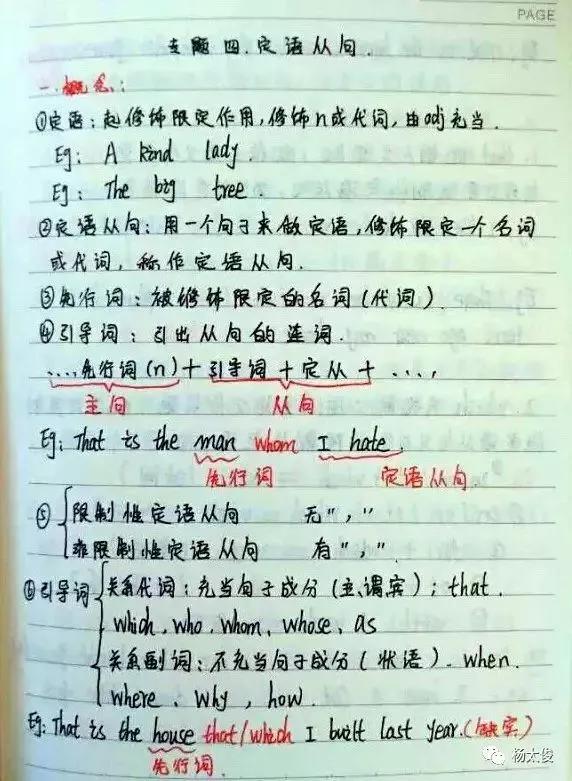 PAGE
专题四.定语从句.
一.概念:
①定语:起修饰限定作用,修饰n或代词,由adj充当.
Eg: A kind lady.
Eg: The big tree.
②定语从句:用一个句子来做定语,修饰限定一个名词
或代词,称作定语从句.
③先行词:被修饰限定的名词(代词).
④引导词:引出从句的连词.
....先行词(n)+引导词+定从+....,
主句 从句
Eg: That is the man whom I hate.
先行词 定语从句
⑤ 限制性定语从句 无","
非限制性定语从句 有",".
⑥引导词 关系代词:充当句子成分(主、谓、宾);that.
which、who、whom、whose、as
关系副词:不充当句子成分(状语).when.
where、why、how.
Eg: That is the house that/which I built last year.(缺宾)
先行词.
杨太俊